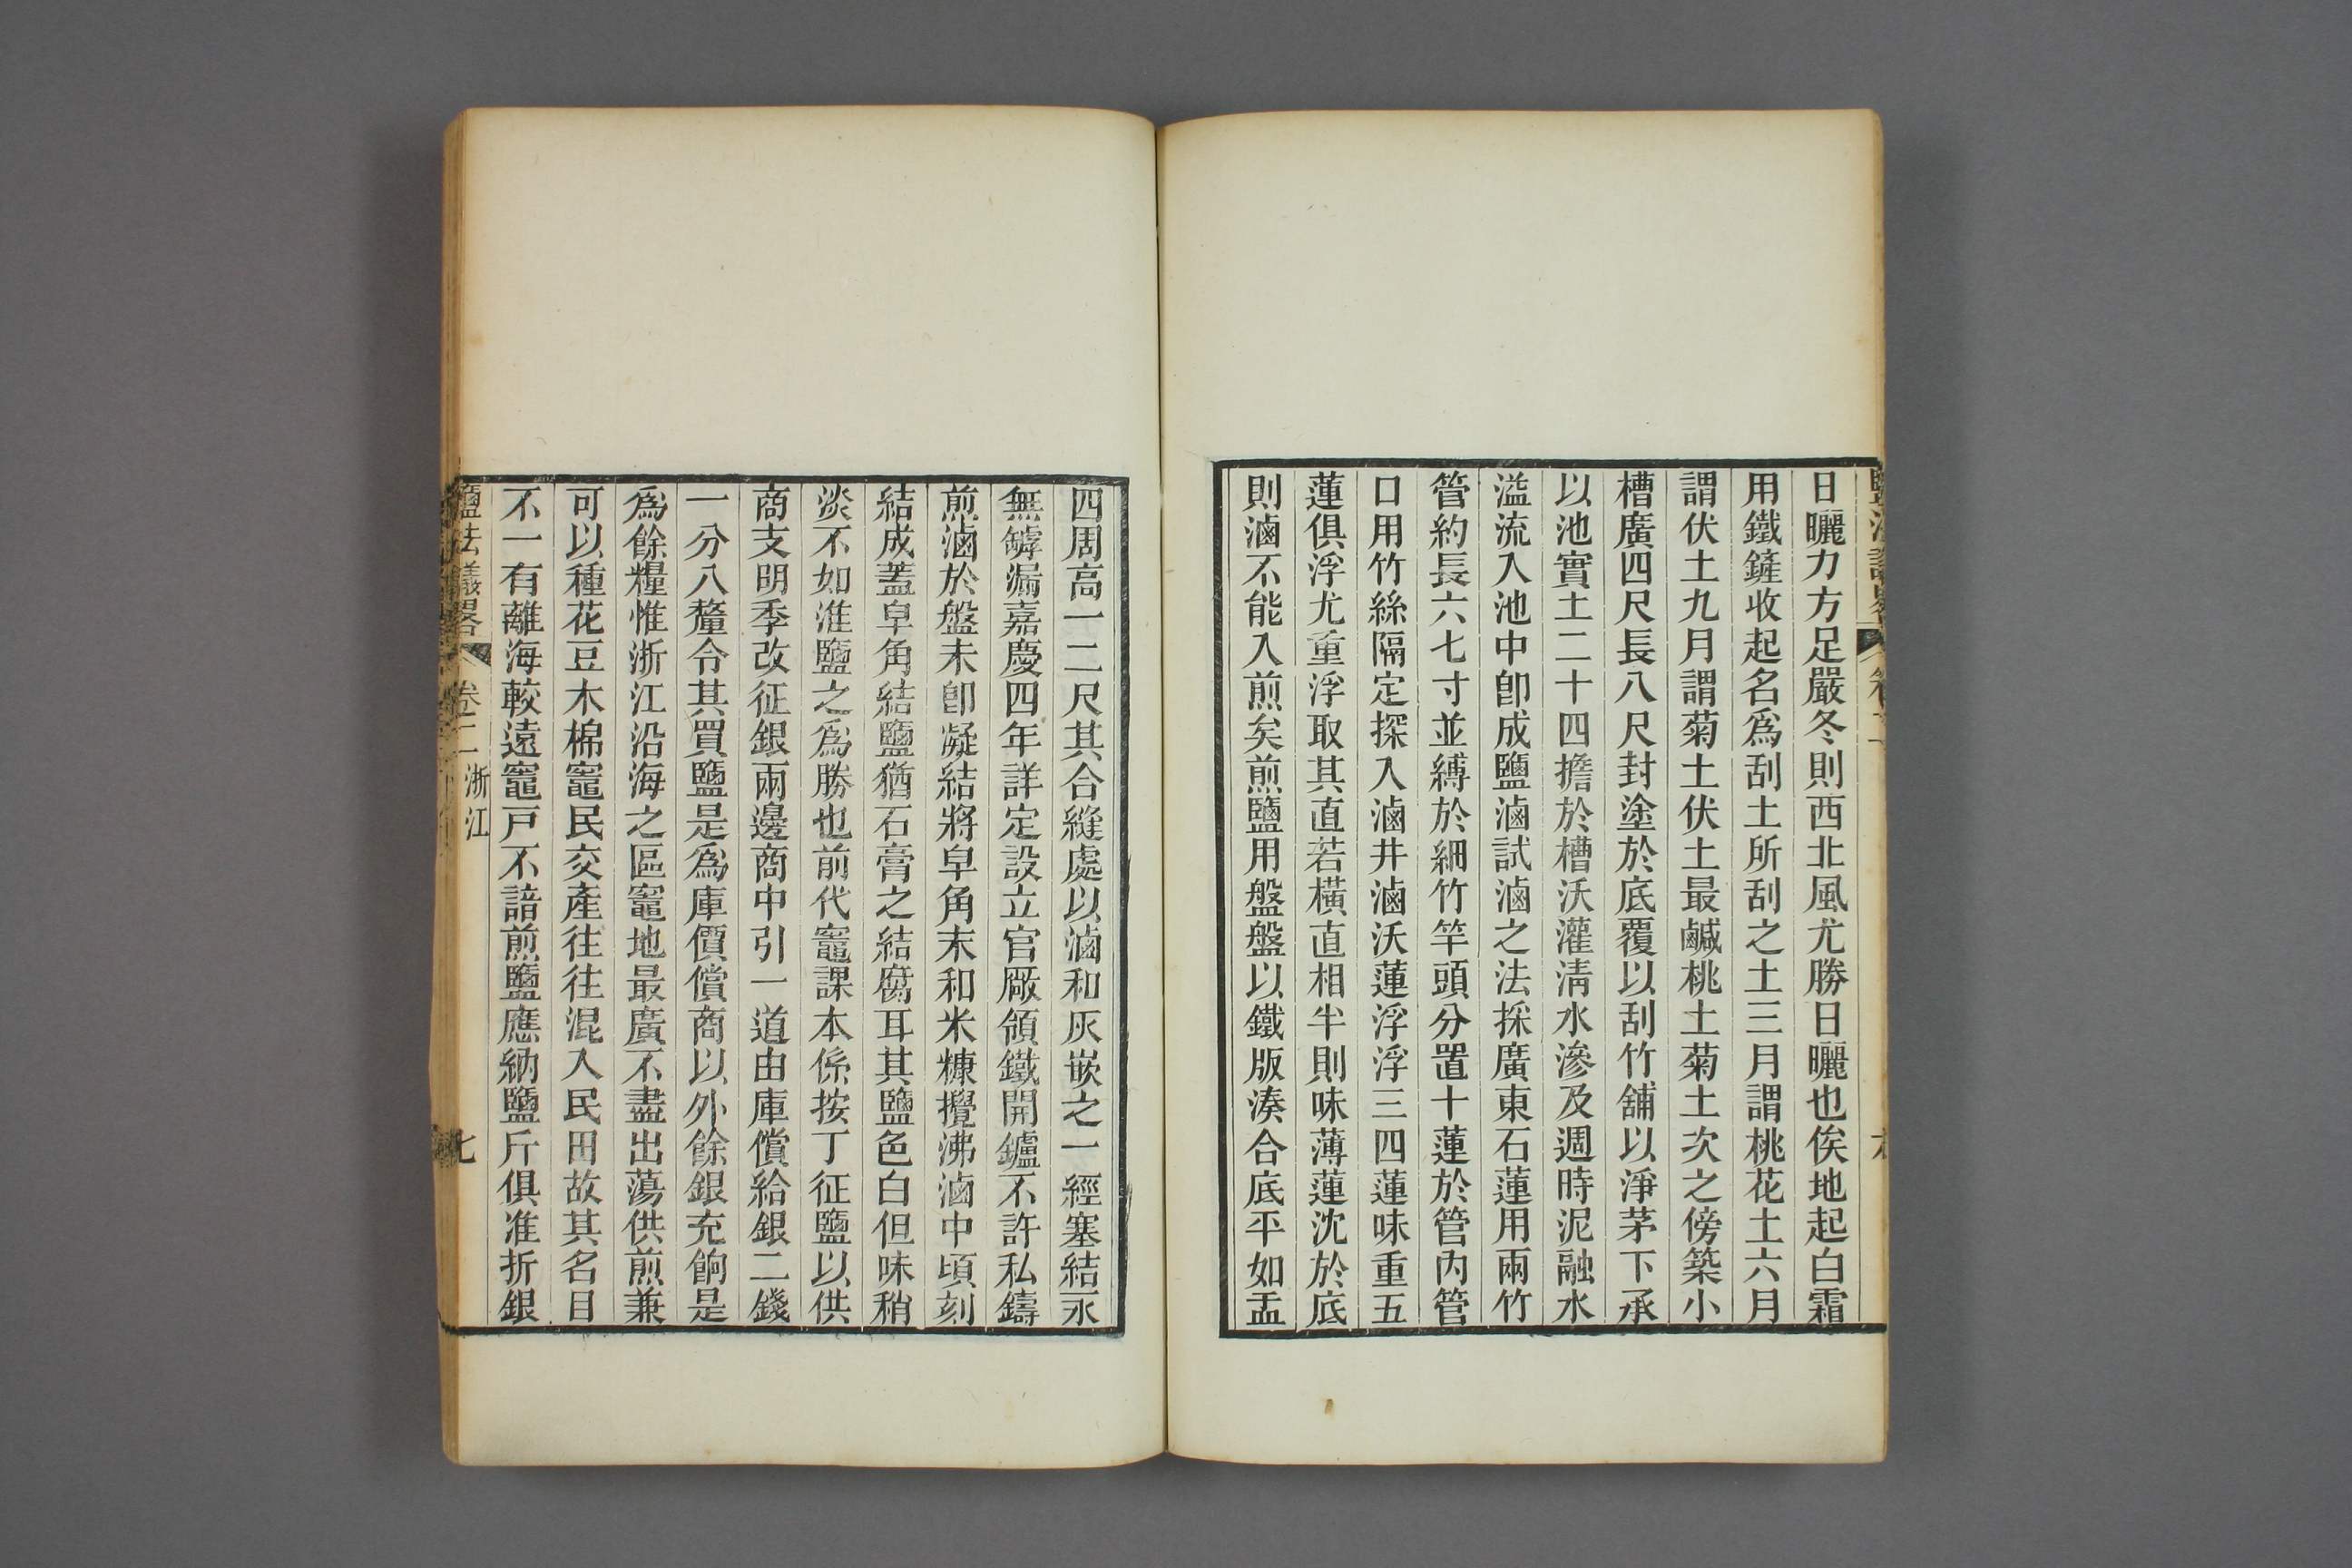 日曬力方足嚴冬則西北風尤勝日曬也俟地起白霜
用鐵鏟收起名爲刮土所刮之土三月謂桃花土六月
謂伏土九月謂菊土伏土最鹹桃土菊土次之傍築小
槽廣四尺長八尺封塗於底覆以刮竹舖以淨茅下承
以池實土二十四擔於槽沃灌淸水滲及週時泥融水
溢流入池中卽成鹽滷試滷之法採廣東石蓮用兩竹
管約長六七寸並縛於細竹竿頭分置十蓮於管內管
口用竹絲隔定探入滷井滷沃蓮浮浮三四蓮味重五
蓮俱浮尤重浮取其直若橫直相半則味薄蓮沈於底
則滷不能入煎矣煎鹽用盤盤以鐵版湊合底平如盂
四周高一二尺其合縫處以滷和灰嵌之一經塞結永
無罅漏嘉慶四年詳定設立官廠領鐵開鑪不許私鑄
煎滷於盤未卽凝結將皁角末和米糠攪沸滷中頃刻
結成蓋皁角結鹽猶石膏之結腐耳其鹽色白但味稍
淡不如淮鹽之爲勝也前代竈課本係按丁征鹽以供
商支明季改征銀兩邊商中引一道由庫償給銀二錢
一分八釐令其買鹽是爲庫價償商以外餘銀充餉是
爲餘糧惟浙江沿海之區竈地最廣不盡出蕩供煎兼
可以種花豆木棉竈民交產往往混入民田故其名目
不一有離海較遠竈戸不諳煎鹽應納鹽斤俱准折銀
鹽法議畧
卷二 浙江
七